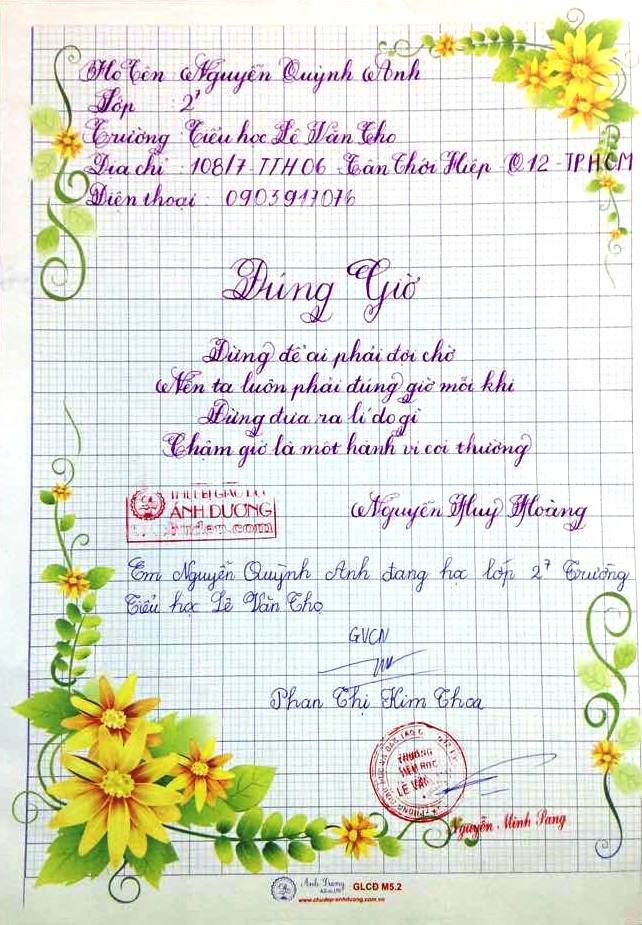 Họ Tên Nguyễn Quỳnh Anh
Lớp 2⁷
Trường Tiểu học Lê Văn Thọ
Địa chỉ : 108/7 - TTH 06 - Tân Thới Hiệp - Q12 - TP.HCM
Điện thoại : 0903917076
Đúng Giờ
Đừng để ai phải đợi chờ
Nên ta luôn phải đúng giờ mỗi khi
Đừng đưa ra lí do gì
Chậm giờ là một hành vi coi thường
Nguyễn Huy Hoàng
ÁNH DƯƠNG
Em Nguyễn Quỳnh Anh đang học lớp 2⁷ Trường
Tiểu học Lê Văn Thọ
GVCN
Phan Thị Kim Thoa
TRƯỜNG
TIỂU HỌC
LÊ VĂN
Nguyễn Minh Sang
Ánh Dương
GLCĐ M5.2
www.chudep-anhduong.com.vn